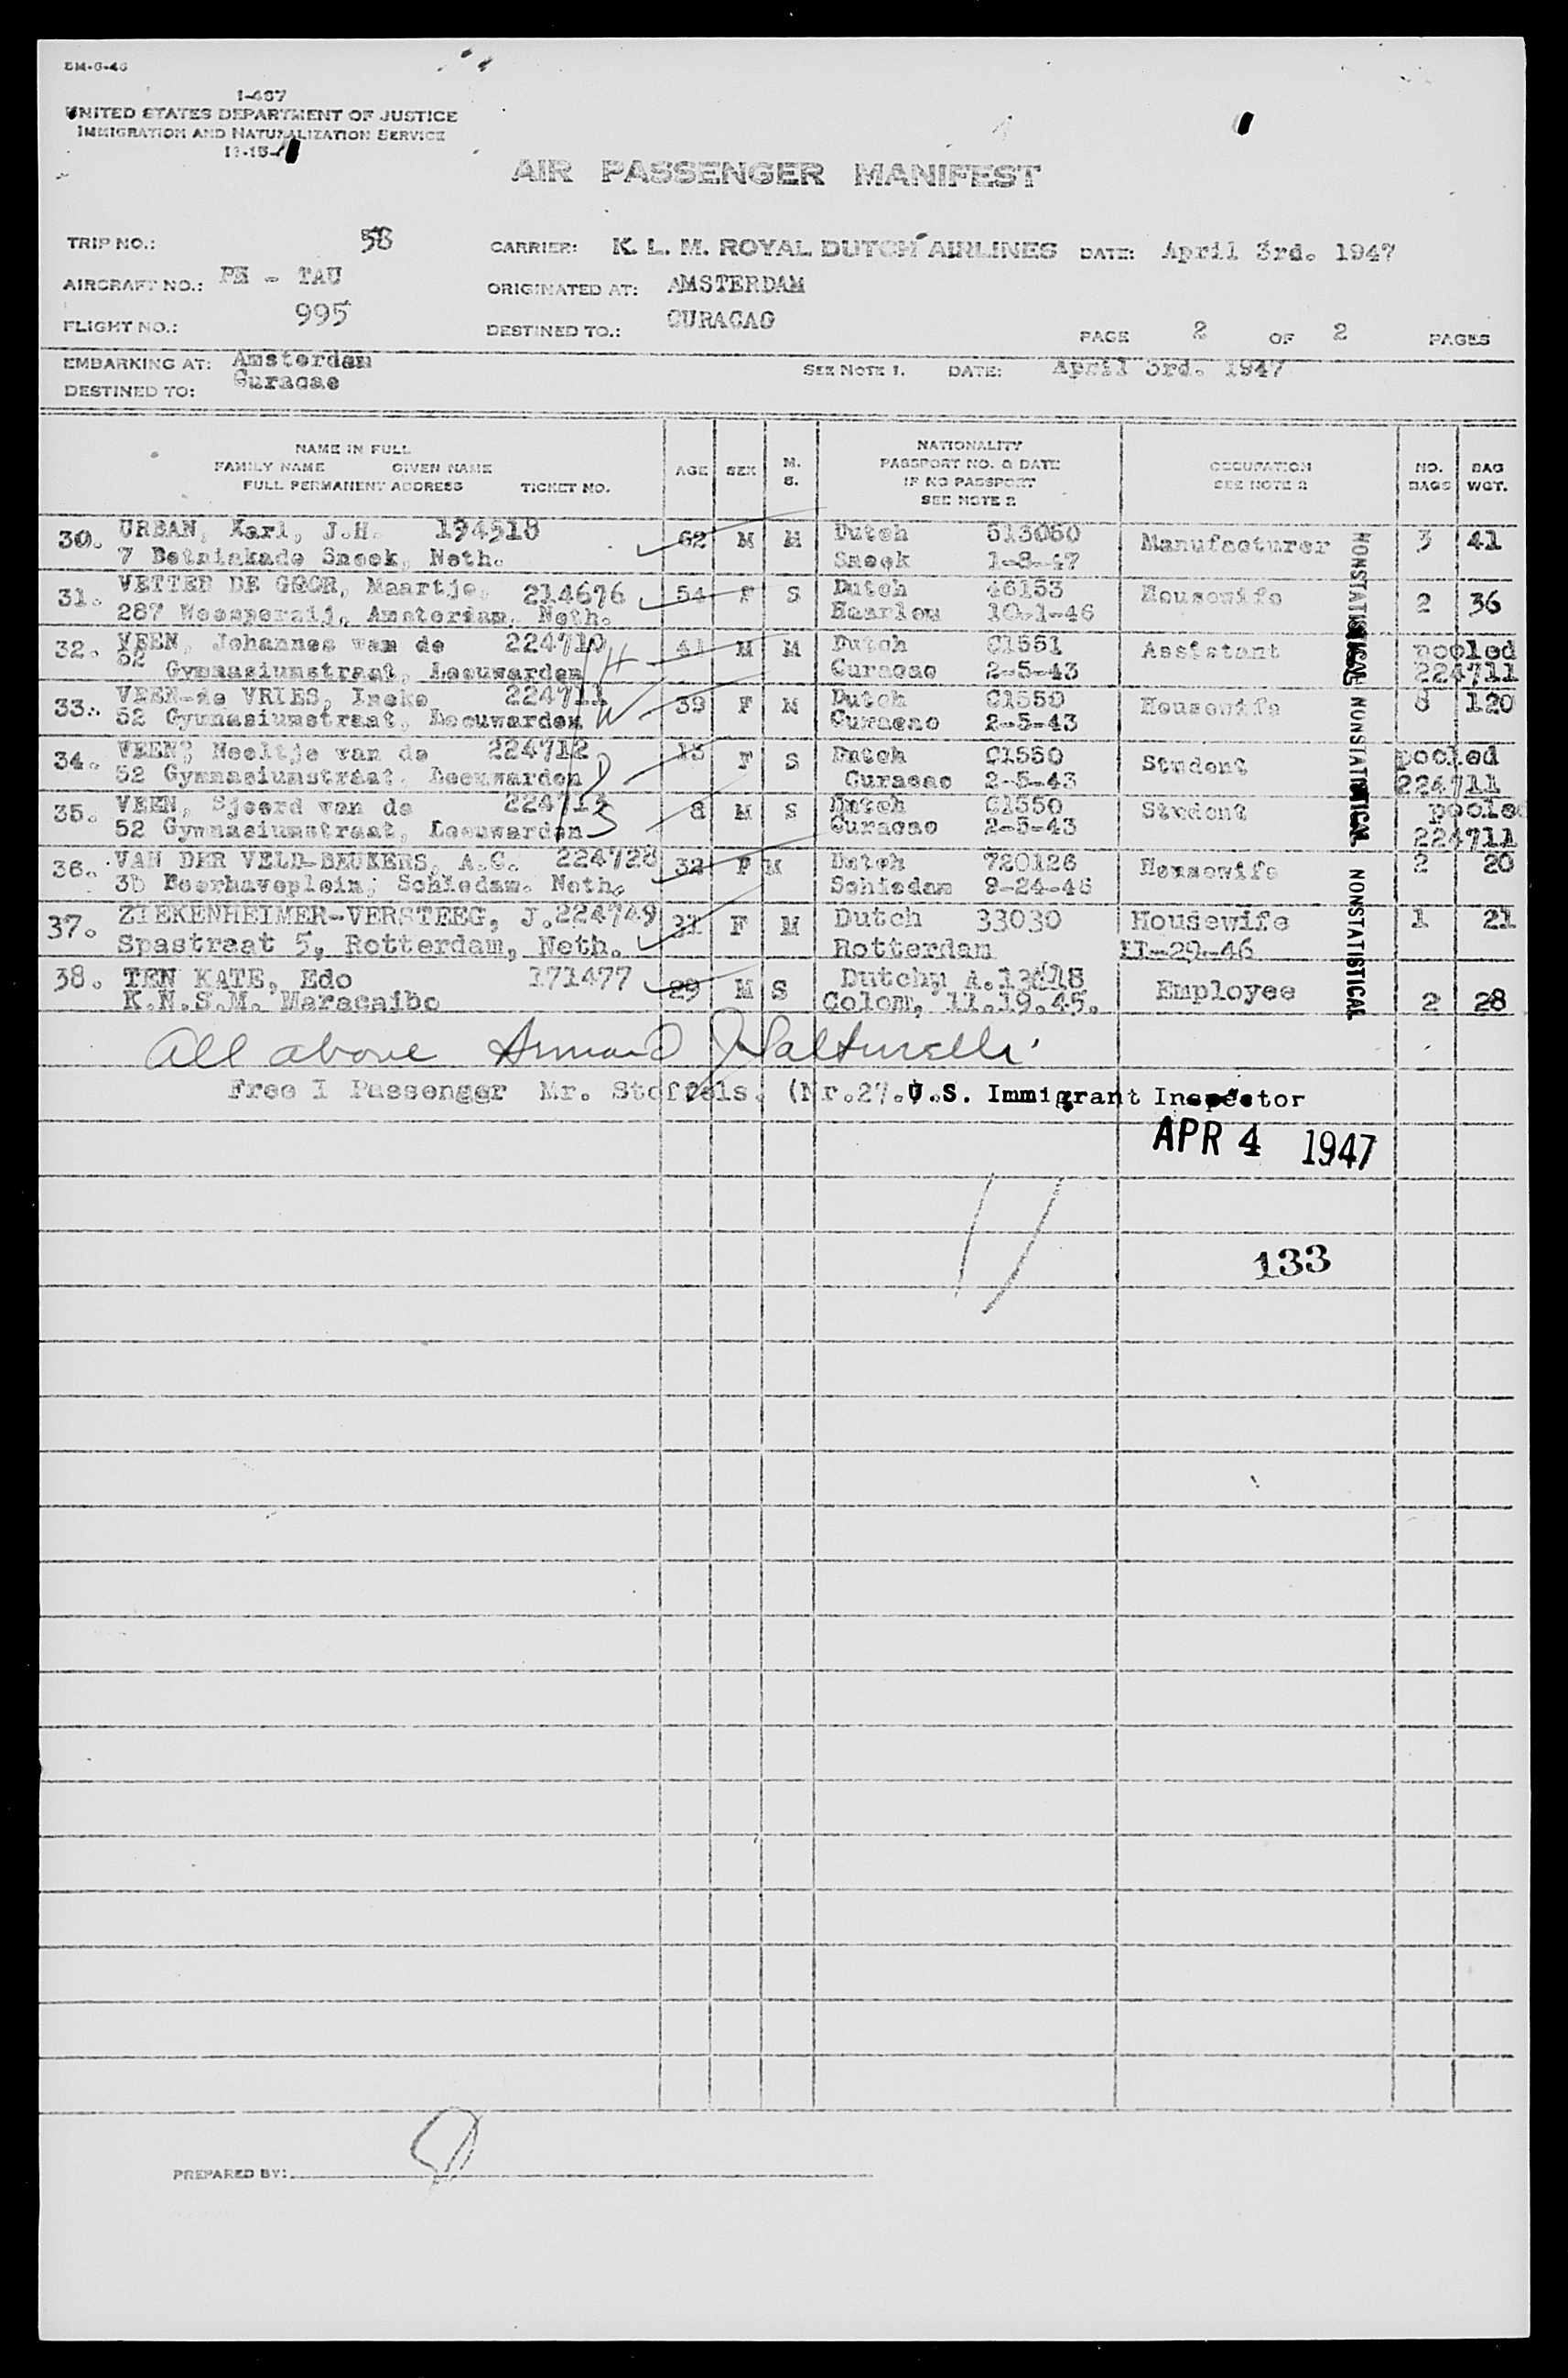 I-467
UNITED STATES DEPARTMENT OF JUSTICE
IMMIGRATION AND NATURALIZATION SERVICE
AIR PASSENGER MANIFEST
TRIP NO.: 58 CARRIER: K. L. M. ROYAL DUTCH AIRLINES DATE: April 3rd. 1947
AIRCRAFT NO.: PH - TAU ORIGINATED AT: AMSTERDAM
FLIGHT NO.: 995 DESTINED TO.: CURACAO PAGE 2 OF 2 PAGES
EMBARKING AT: Amsterdam SEE NOTE 1. DATE: April 3rd. 1947
DESTINED TO: Curacao
NAME IN FULL
FAMILY NAME GIVEN NAME
FULL PERMANENT ADDRESS TICKET NO.
AGE SEX M. S.
NATIONALITY
PASSPORT NO. & DATE
IF NO PASSPORT
SEE NOTE 2
OCCUPATION
SEE NOTE 2
NO. BAGS
BAG WGT.
30. URBAN, Karl, J.H. 194518 62 M M Dutch 513060 Manufacturer 3 41
7 Sneek, Neth. Sneek 1-8-47
31. Maartje, 214676 54 F S Dutch 46153 Housewife 2 36
287 Amsterdam, Neth. Haarlem
32. VEEN, Johannes van de 224710 H 41 M M Dutch C1551 Assistant pooled
52 Gymnasiumstraat, Leeuwarden Curacao 2-5-43 224711
33. VEEN-de VRIES, Ineke 224711 W 39 F M Dutch C1550 Housewife 8 120
52 Gymnasiumstraat, Leeuwarden Curacao 2-5-43
34. VEEN, Neeltje van de 224712 D F S Dutch C1550 Student pooled
52 Gymnasiumstraat, Leeuwarden Curacao 2-5-43 224711
35. VEEN, Sjoerd van de 224713 S 8 M S Dutch C1550 Student pooled
52 Gymnasiumstraat, Leeuwarden Curacao 2-5-43 224711
36. VAN DER VELD-BEUKERS, A.C. 224728 32 F M Dutch 720126 Housewife 2 20
3b Boerhaveplein, Schiedam. Neth. Schiedam 9-24-46
37. ZIEKENHEIMER-VERSTEEG, J. 224749 F M Dutch 33030 Housewife 1 21
Spastraat 5, Rotterdam, Neth. Rotterdam 11-29-46
38. TEN KATE, Edo 171477 29 M S Dutch Employee 2 28
K.N.S.M. Maracaibo Colom, 11.19.45.
NONSTATISTICAL NONSTATISTICAL NONSTATISTICAL
All above Armand J.
Free I Passenger Mr. Stoffels. (Nr.27.) U.S. Immigrant Inspector
APR 4 1947
133
PREPARED BY: